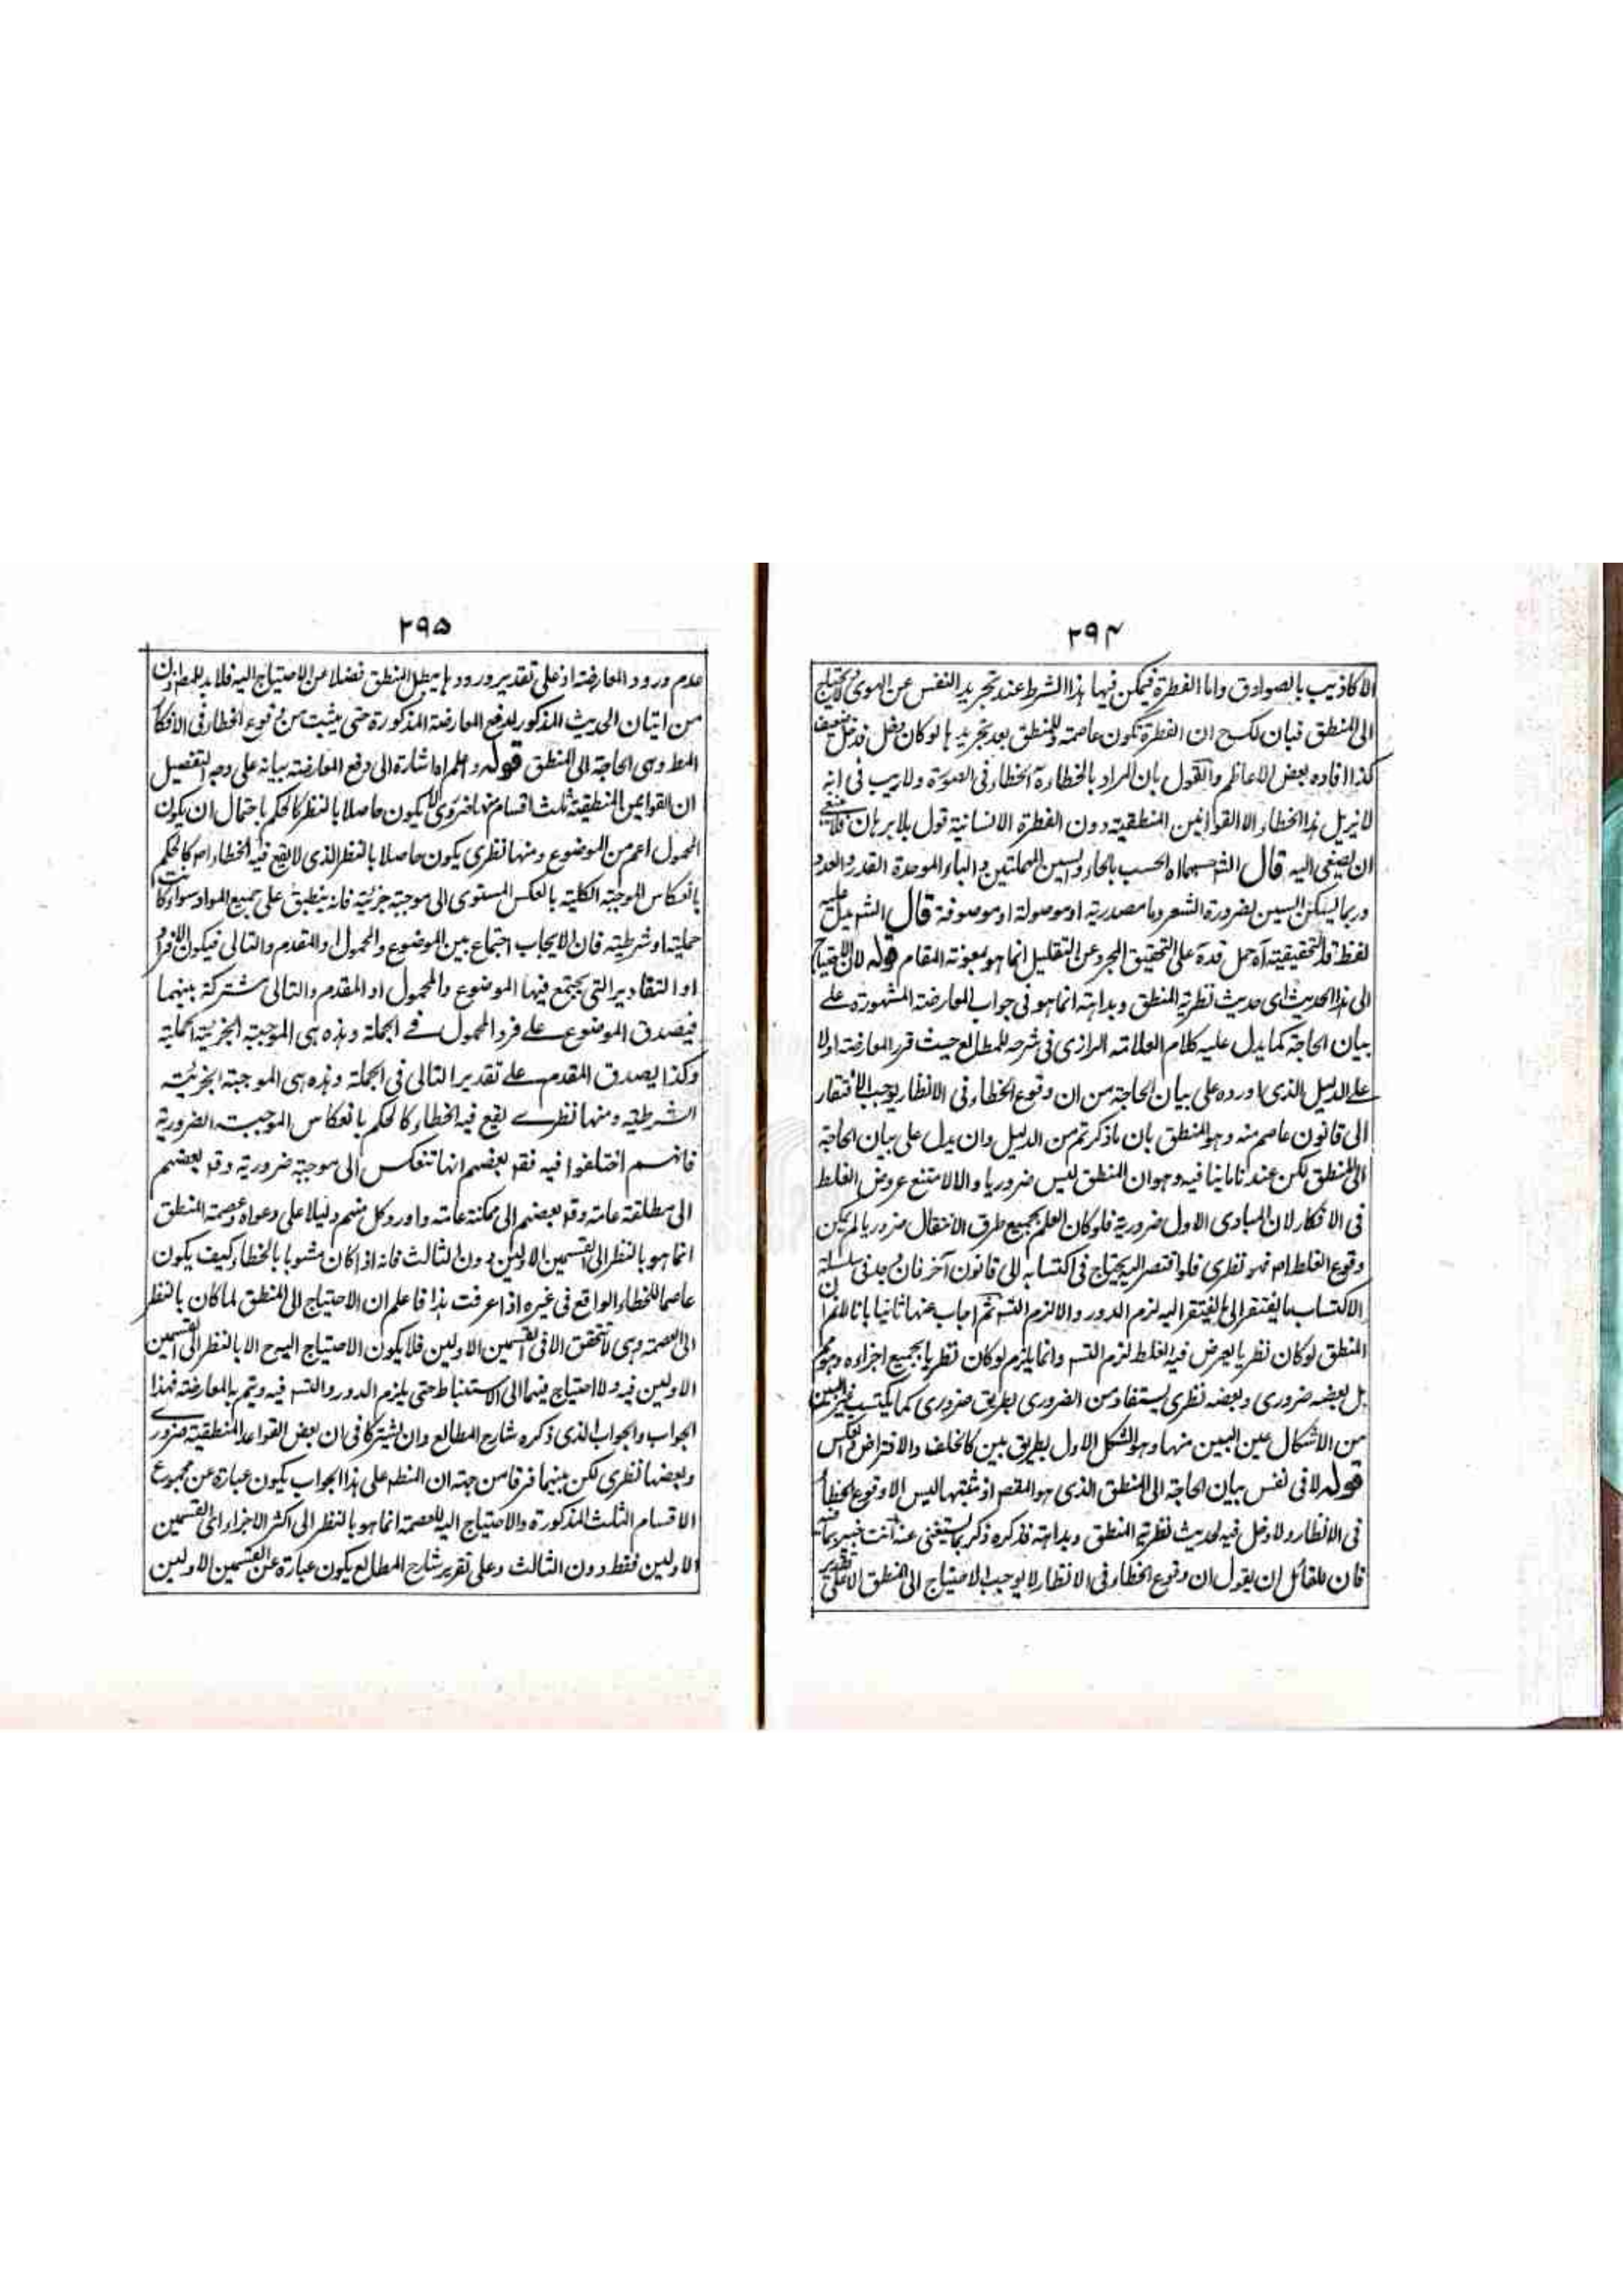 ۲۹۴
الاکاذیب بالصوادق واما الفطرة فیمکن فیها هذا الشرط عند تجرید النفس عن الهوی فلا یحتاج
الی المنطق فبان لک ح ان الفطرة تکون عاصمة والمنطق بعد تجریدها لو کان دخل فدخل ضعیف
کذا افاده بعض الاعاظم والقول بان المراد بالخطاء آه الخطاء فی الصورة ولاریب فی انه
لا یزیل هذا الخطاء الا القوانین المنطقیة دون الفطرة الانسانیة قول بلا برهان فلا ینبغی
ان یصغی الیه قال الش حسبما اه الحسب بالحاء والسین المهملتین والباء الموحدة القدر والعدد
وربما یسکن السین لضرورة الشعر وما مصدریة او موصولة او موصوفة قال الش یدل علیه
لفظة قد التحقیقیة آه حمل قد ة علی التحقیق المجرد عن التقلیل انما هو بمعونة المقام قوله لان الاحتیاج
الی هذا الحدیث ای حدیث نظریة المنطق وبداهته انما هو فی جواب المعارضة المشهورة علے
بیان الحاجة کما یدل علیه کلام العلامة الرازی فی شرحه للمطالع حیث قرر المعارضة اولا
علے الدلیل الذی اورده علی بیان الحاجة من ان وقوع الخطاء فی الانظار یوجب الافتقار
الی قانون عاصم منه وهو المنطق بان ما ذکرتم من الدلیل وان یدل علی بیان الحاجة
الی المنطق لکن عندنا ما ینافیه وهو ان المنطق لیس ضروریا والا لامتنع عروض الغلط
فی الافکار لان المبادی الاول ضروریة فلو کان العلم بجمیع طرق الانتقال ضروریا لم یکن
وقوع الغلط ام فهو نظری فلو افتقر الیه یحتاج فی اکتسابه الی قانون آخر فان یعد فی سلسلة
الاکتساب ما یفتقر الی ما یفتقر الیه لزم الدور والا لزم التسـ ثم اجاب عنها ثانیا بانا لانم ان
المنطق لو کان نظریا یعرض فیه الغلط لزم التسـ وانما یلزم لو کان نظریا بجمیع اجزاءه وهو مم
بل بعضه ضروری وبعضه نظری یستفاد من الضروری بطریق ضروری کما یکتسب غیر البین
من الاشکال عین البین منها وهو الشکل الاول بطریق بین کالخلف والافتراض والعکس
قوله لا فی نفس بیان الحاجة الی المنطق الذی هو المقصـ اذ مثبتها لیس الا وقوع الخطأ
فی الانظار ولا دخل فیه لحدیث نظریة المنطق وبداهته فذکره ذکر بما یستغنی عنه انت خبیر بما فیه
فان للقائل ان یقول ان وقوع الخطاء فی الانظار لا یوجب الاحتیاج الی المنطق الا علی تقدیر
۲۹۵
عدم ورود المعارضة اذ علی تقدیر ورودها یبطل المنطق فضلا عن الاحتیاج الیه فلا بد للمط اذن
من اتیان الحدیث المذکور لدفع المعارضة المذکورة حتی یثبت من وقوع الخطاء فی الافکار
المط وهی الحاجة الی المنطق قوله واعلم اه اشارة الی دفع المعارضة بیانه علی وجه التفصیل
ان القوانین المنطقیة ثلث اقسام منها ضروری لا یکون حاصلا بالنظر کالحکم باحتمال ان یکون
المحمول اعم من الموضوع ومنها نظری یکون حاصلا بالنظر الذی لا یقع فیه الخطاء اصـ کالحکم
بانعکاس الموجبة الکلیة بالعکس المستوی الی موجبة جزئیة فانه ینطبق علی جمیع المواد سواء کانت
حملیة او شرطیة فان الایجاب اجتماع بین الموضوع والمحمول او المقدم والتالی فیکون الافراد
او التقادیر التی یجتمع فیها الموضوع والمحمول او المقدم والتالی مشترکة بینهما
فیصدق الموضوع علے فرد المحمول فے الجملة وهذه هی الموجبة الجزئیة الحملیة
وکذا یصدق المقدم علے تقدیر التالی فی الجملة وهذه هی الموجبة الجزئیة
الشرطیة ومنها نظرے یقع فیه الخطاء کالحکم بانعکاس الموجبة الضروریة
فانهم اختلفوا فیه فقـ بعضهم انها تنعکس الی موجبة ضروریة وقـ بعضهم
الی مطلقة عامة وقـ بعضهم الی ممکنة عامة واورد کل منهم دلیلا علی دعواه وعصمة المنطق
انما هو بالنظر الی القسمین الاولین دون الثالث فانه اذا کان مشوبا بالخطاء کیف یکون
عاصما للخطاء الواقع فی غیره اذا عرفت هذا فاعلم ان الاحتیاج الی المنطق لما کان بالنظر
الی العصمة وهی لا تتحقق الا فی القسمین الاولین فلا یکون الاحتیاج الیه ح الا بالنظر الی القسمین
الاولین فیه ولا احتیاج فیهما الی الاستنباط حتی یلزم الدور والتسـ فیه ویتم بالمعارضة فهذا
الجواب والجواب الذی ذکره شارح المطالع وان اشترکا فی ان بعض القواعد المنطقیة ضرورے
وبعضها نظری لکن بینهما فرقا من جهة ان المنطـ علی هذا الجواب یکون عبارة عن مجموع
الاقسام الثلث المذکورة والاحتیاج الیه للعصمة انما هو بالنظر الی اکثر الاجزاء ای القسمین
الاولین فقط دون الثالث وعلی تقریر شارح المطالع یکون عبارة عن القسمین الاولین